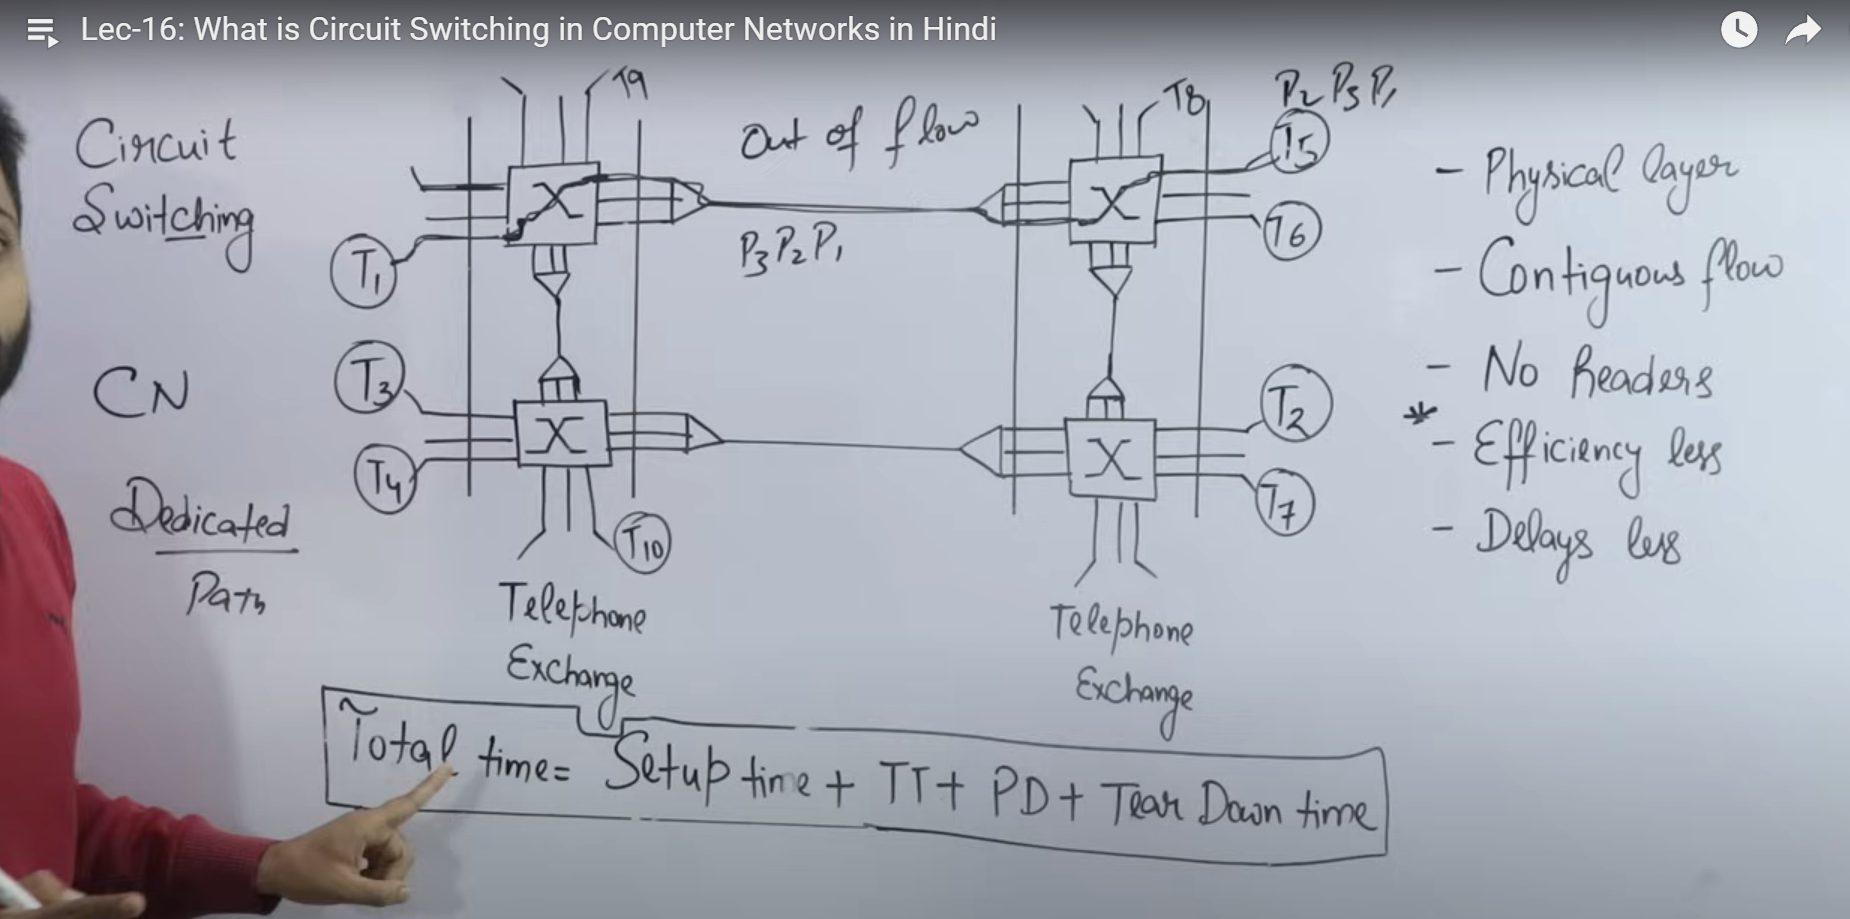 Lec-16: What is Circuit Switching in Computer Networks in Hindi
Circuit
Switching
CN
Dedicated
Path
T9
Out of flow
T8
P2 P3 P1
T5
T6
T1
P3 P2 P1
T3
T4
T10
T2
T7
Telephone
Exchange
Telephone
Exchange
- Physical layer
- Contiguous flow
- No headers
* - Efficiency less
- Delays less
Total time = Setup time + TT + PD + Tear Down time